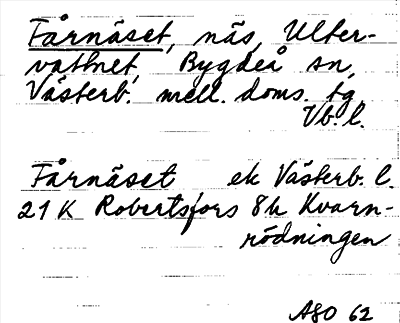 Fårnäset, näs, Ulter-
vattnet, Bygdeå sn,
Västerb. mell. doms. tg,
Vb. l.
Fårnäset ek Västerb. l.
21 K Robertsfors 8h Kvarn-
rödningen
ASO 62